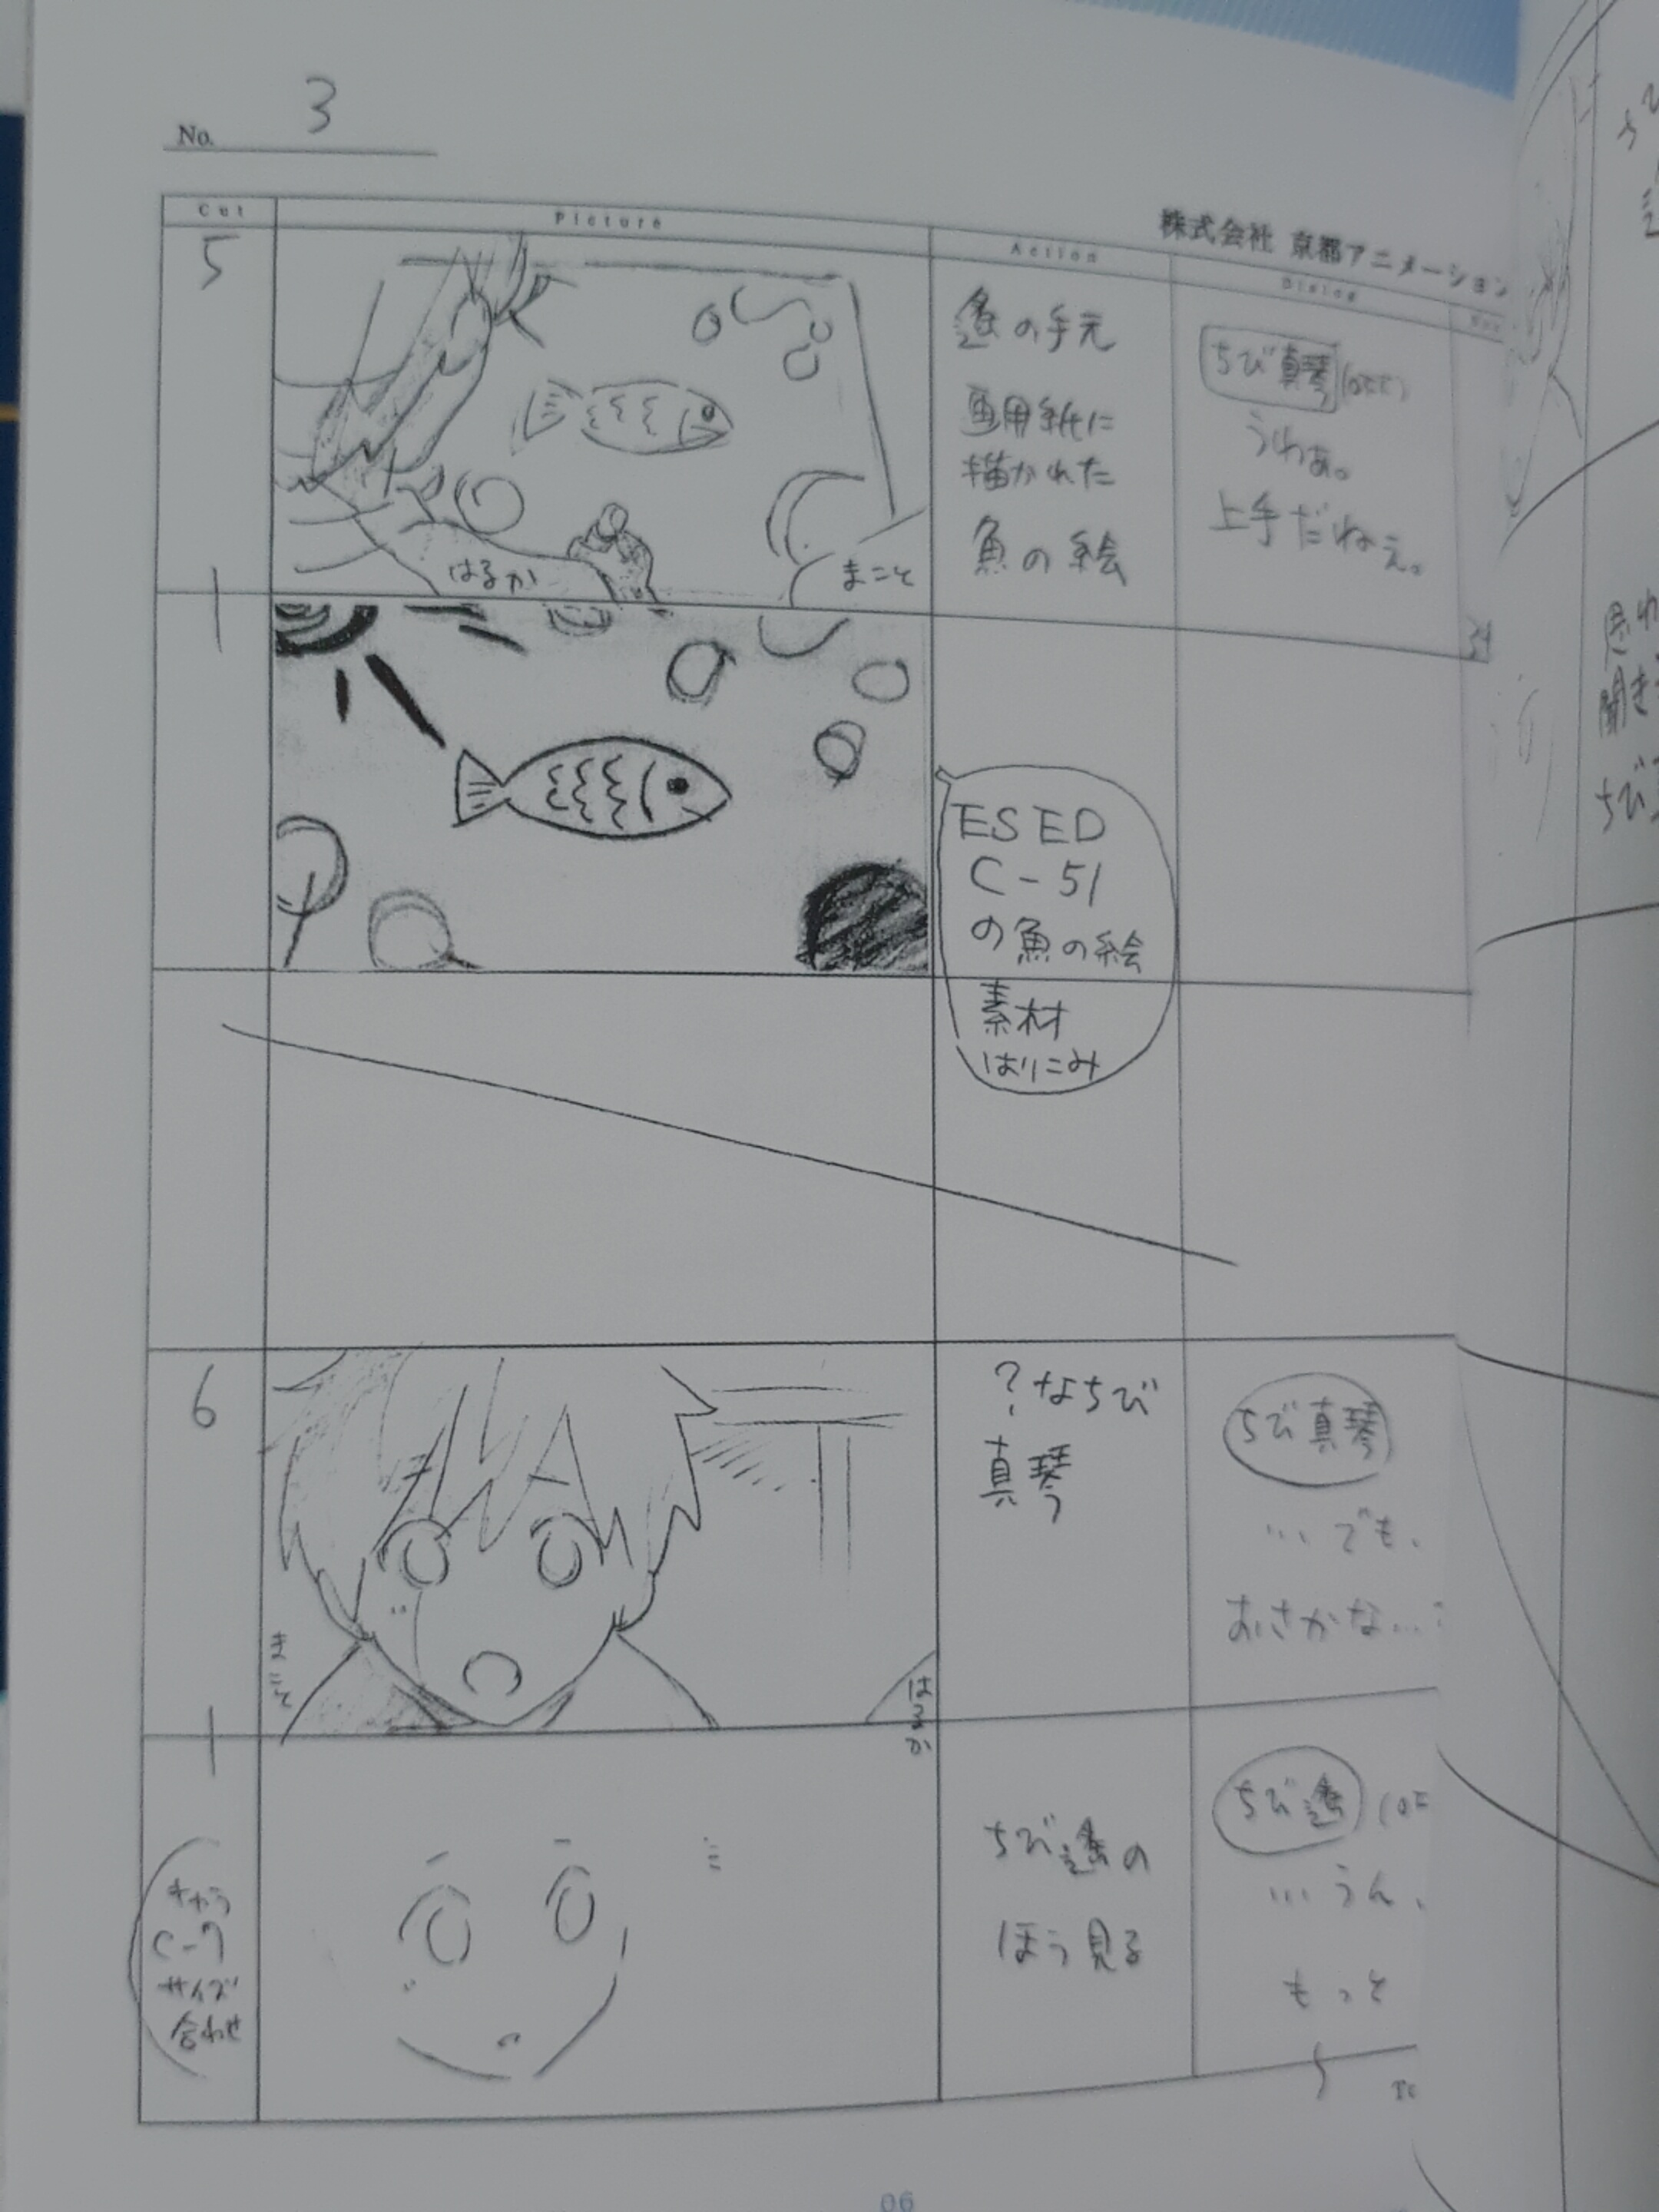 No. 3
Cut
Picture
株式会社 京都アニメーション
Action
Dialog
5
遙の手元
画用紙に
描かれた
魚の絵
ちび真琴
うわぁ。
上手だねぇ。
はるか
まこと
ESED
C-51
の魚の絵
素材
はりこみ
6
?なちび
真琴
ちび真琴
…でも、
おさかな…
まこと
はるか
キャラ
C-7
サイズ
合わせ
ちび遙の
ほう見る
ちび遙
…うん、
もっと
06